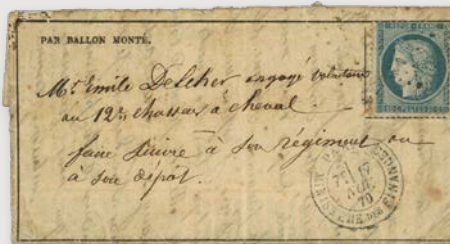 PAR BALLON MONTÉ.
Mr Emile Delcher engagé volontaire
au 12e Chasseurs à cheval
faire suivre à son régiment ou
à son dépôt.
REPUB. FRANC.
PARIS
MINISTERE DES FINANCES
70